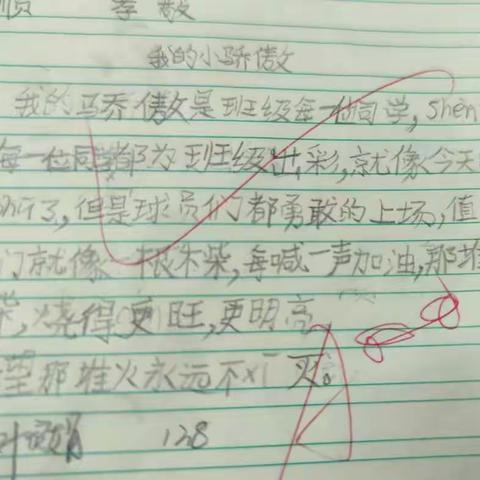 顺 孝 敬
我的小骄傲
我的骄傲是班级每一位同学，shén
每一位同学都为班级出彩，就像今天
了，但是球员们都勇敢的上场，值
门就像一根木柴，每喊一声加油，那堆
柴，烧得更旺，更明亮
望那堆火永远不xī灭。
叶 128